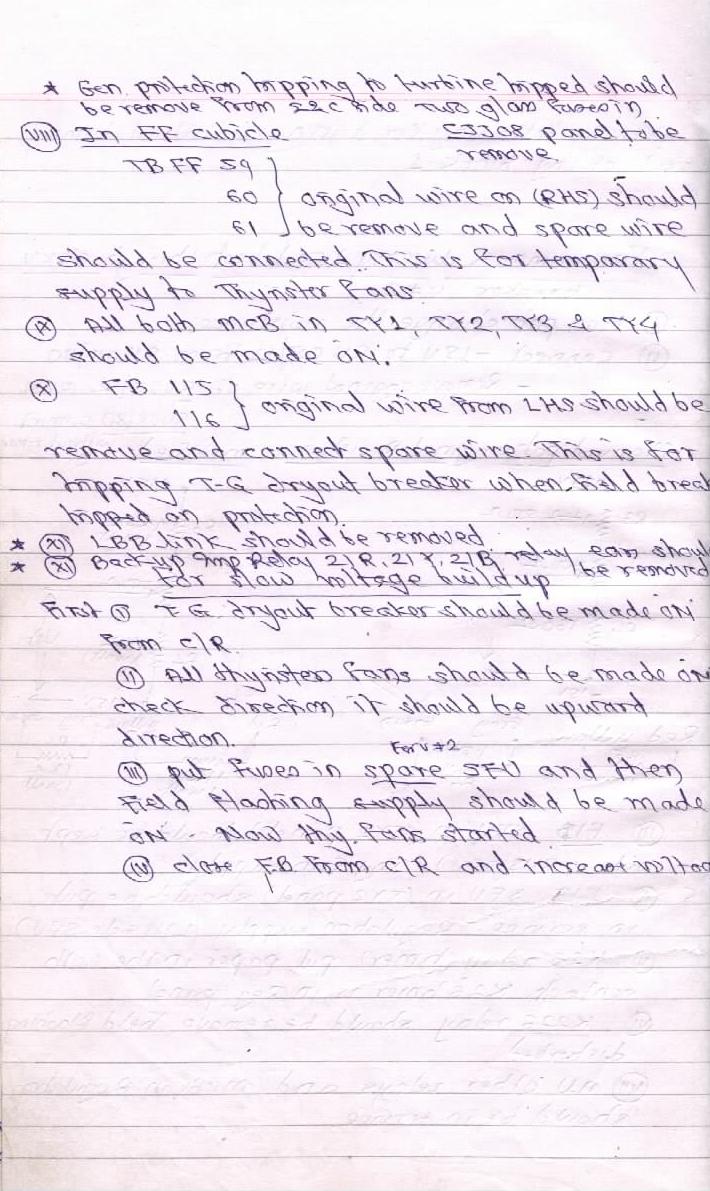 * Gen. protection tripping to turbine tripped should
be remove from 22C side two glass fuses in
(VIII) In FF cubicle CJJ08 panel to be
remove
TB FF 59
60 } original wire on (RHS) should
61 be remove and spare wire
should be connected. This is for temparary
supply to Thynster fans.
(IX) All both MCB in TY1, TY2, TY3 & TY4
should be made ON.
(X) FB 115
116 } original wire from LHS should be
remove and connect spare wire. This is for
tripping T-G dryout breaker when field break
tripped on protection.
* (XI) LBB link should be removed
* (XI) Back-up Imp Relay 21R, 21Y, 21B, relay shoul
be removed
For slow voltage buildup
First (I) T G. dryout breaker should be made ON
from C/R.
(II) All thynsters fans should be made ON
check direction it should be upward
direction.
For U#2
(III) put fuses in spare SFU and then
Field Flashing supply should be made
ON. Now thy. fans started.
(IV) close F.B from C/R and increase voltag